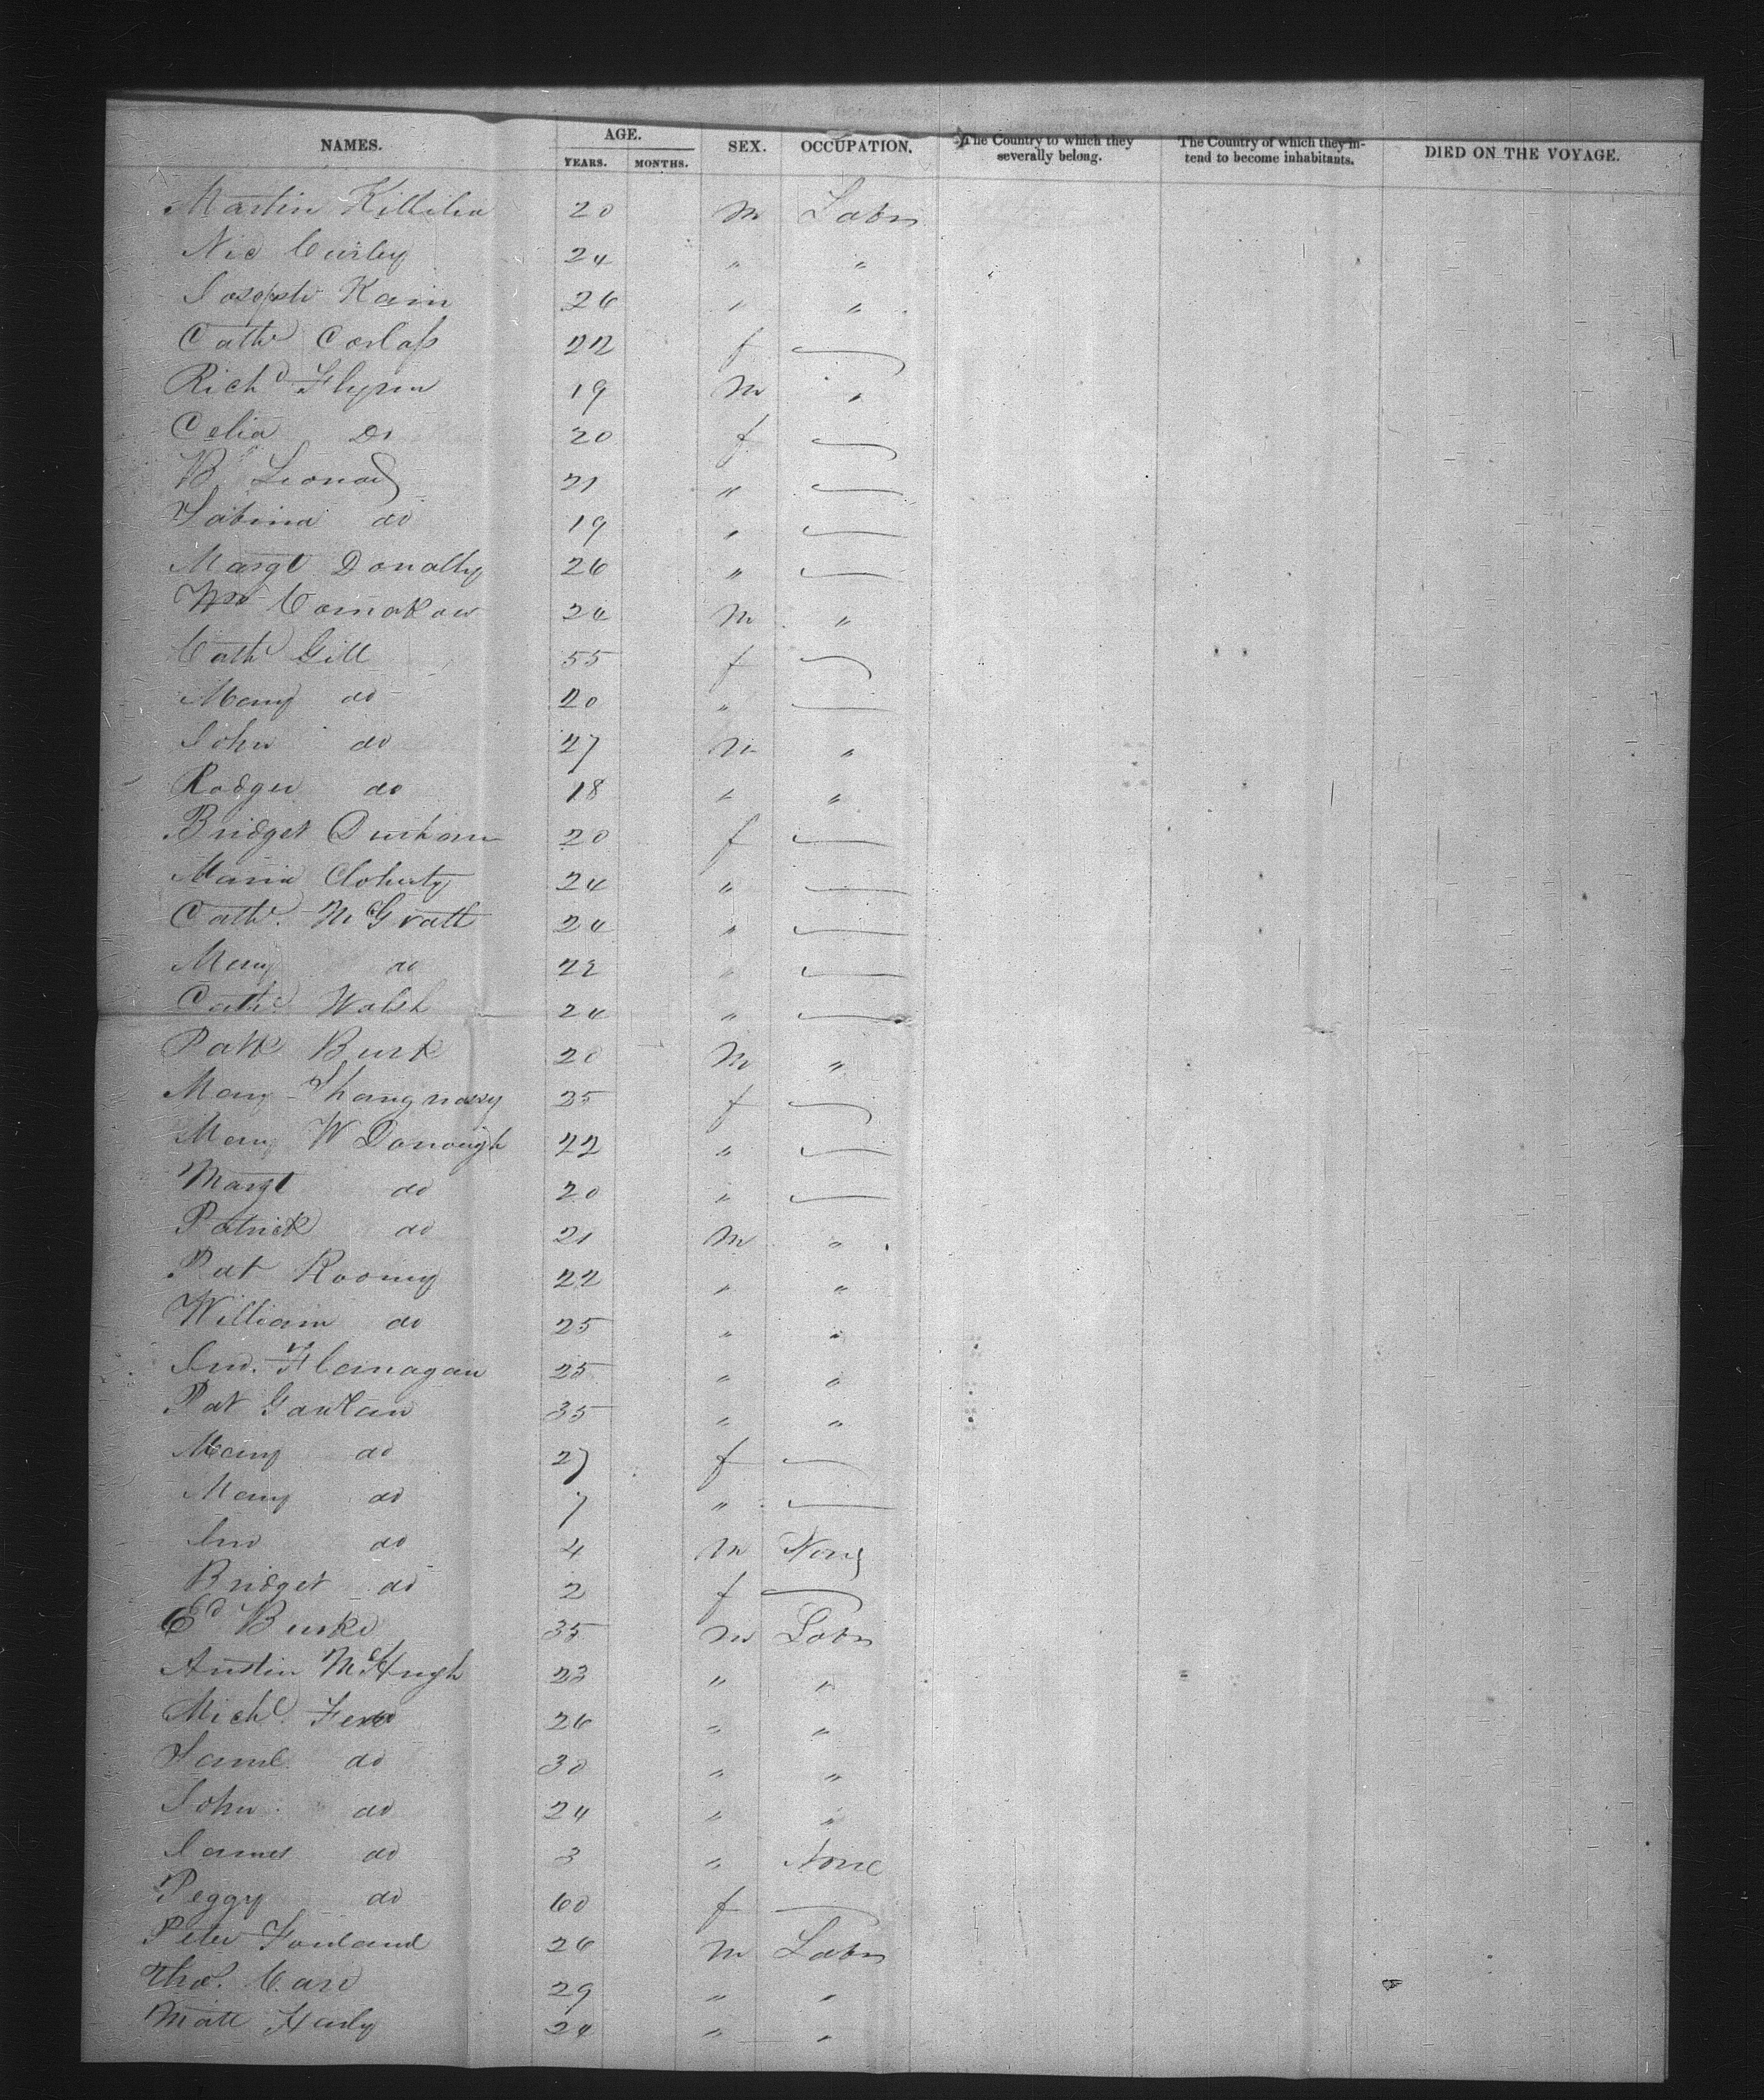 NAMES. AGE. SEX. OCCUPATION. The Country to which they severally belong. The Country of which they intend to become inhabitants. DIED ON THE VOYAGE.
YEARS. MONTHS.
Martin Killilea 20 m Labr
Nic Curley 24 " "
Joseph Kain 26 " "
Cathe Corlass 22 f
Richd Flynn 19 m "
Celia Do 20 f
B. Leonard 21 "
Sabina do 19 "
Margt Donally 26 "
Wm 24 m "
Cath Gill 55 f
Mary do 20 "
John do 27 m "
Rodger do 18 " "
Bridget Durham 20 f
Maria Cloherty 24 "
Cathe. McGrath 24 "
Mary do 22 "
Cathe Walsh 24 "
Patk Burk 20 m "
Mary Shangnasy 25 f
Mary McDonough 22 "
Margt do 20 "
Patrick do 21 m "
Pat Rooney 22 " "
William do 25 " "
Jno. Flanagan 25 " "
Pat Gantan 35 " "
Mary do 27 f
Mary do 7 "
Jno do 4 m None
Bridget do 2 f
Ed Burke 35 m Labr
Austin McHugh 23 " "
Michl. 26 " "
Saml do 30 " "
John do 24 " "
James do 3 " None
Peggy do 60 f
Peter 26 m Labr
Thos. Carr 29 " "
Matt Hurly 24 " "